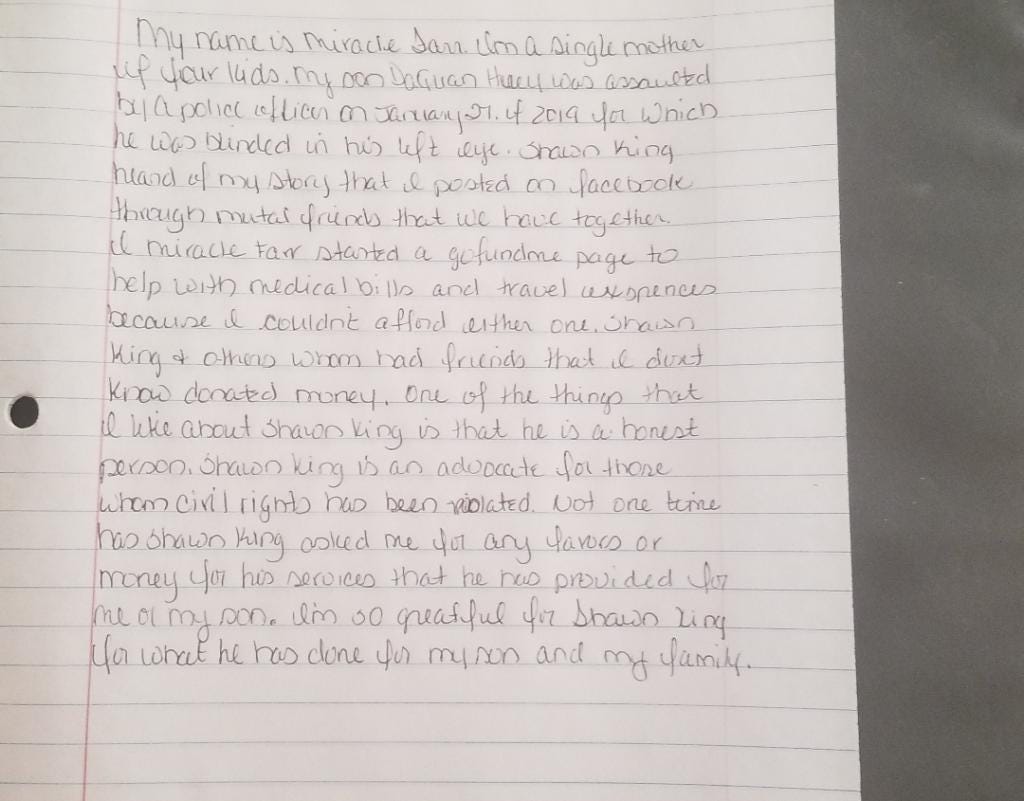 My name is miracle Farr. I'm a single mother
of four kids. My son DaQuan Huey was assaulted
by a police officer on January 21. of 2019 for which
he was blinded in his left eye. Shawn King
heard of my story that I posted on facebook
through mutal friends that we have together.
I miracle Farr started a gofundme page to
help with medical bills and travel exspences
because I couldn't afford either one. Shawn
King & others whom had friends that I dont
know donated money. One of the things that
I like about Shawn King is that he is a honest
person. Shawn King is an advocate for those
whom civil rights has been violated. Not one time
has Shawn King asked me for any favors or
money for his services that he has provided for
me or my son. I'm so greatful for Shawn King
for what he has done for my son and my family.